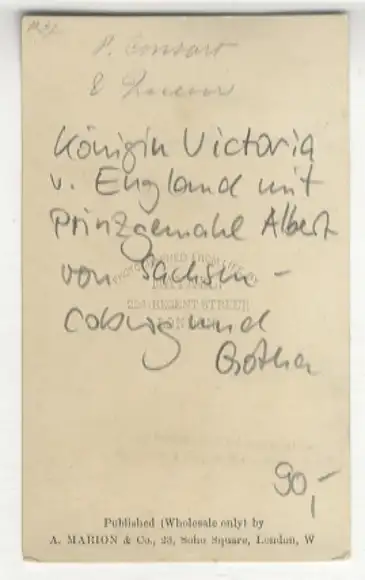 P. Consort
& Queen
Königin Victoria
v. England mit
Prinzgemahl Albert
von Sachsen-
Coburg und
Gotha
PHOTOGRAPHED FROM
REGENT STREET
LONDON
90,-
Published (Wholesale only) by
A. MARION & Co., 23, Soho Square, London, W